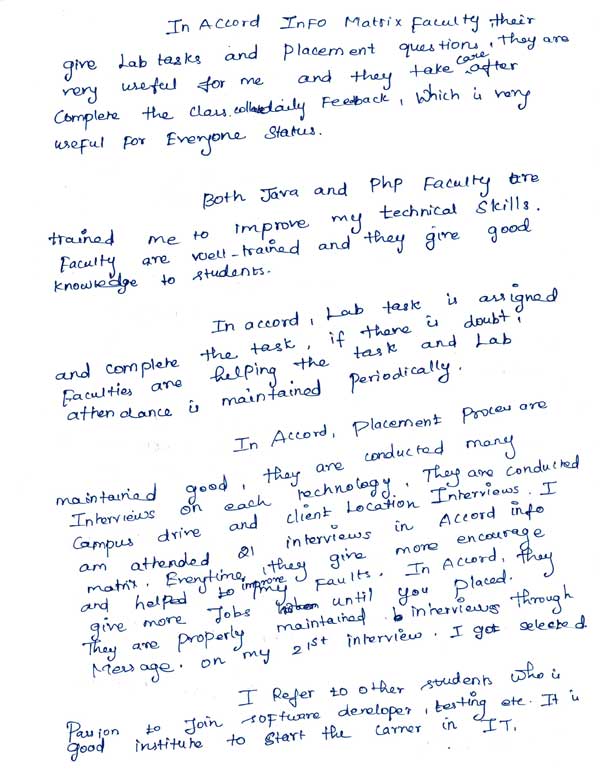 In Accord Info Matrix Faculty, their
give Lab tasks and Placement questions, they are
very useful for me and they take care after
Complete the class. daily Feedback, which is very
useful for Everyone Status.
Both Java and Php Faculty are
trained me to improve my technical skills.
Faculty are well-trained and they give good
knowledge to students.
In accord, Lab task is assigned
and complete the task, if there is doubt,
Faculties are helping the task and Lab
attendance is maintained periodically.
In Accord, Placement Process are
maintained good, they are conducted many
Interviews on each technology. They are conducted
Campus drive and client Location Interviews. I
am attended 21 interviews in Accord info
matrix. Everytime, they give more encourage
and helped to improve my Faults. In Accord, they
give more Jobs until you placed.
They are properly maintained interviews through
Message. on my 21st interview. I got selected
I Refer to other students who is
Passion to Join software developer, testing etc. It is
good institute to start the carrer in IT.